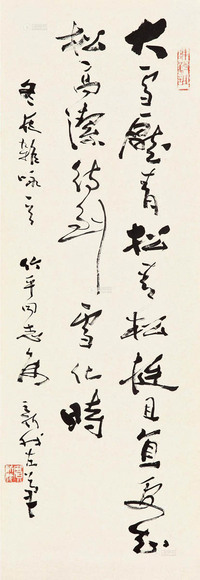 大雪壓青松青松挺且直要知
松高潔待到雪化時
冬夜雜咏 竹平同志屬 新我左筆